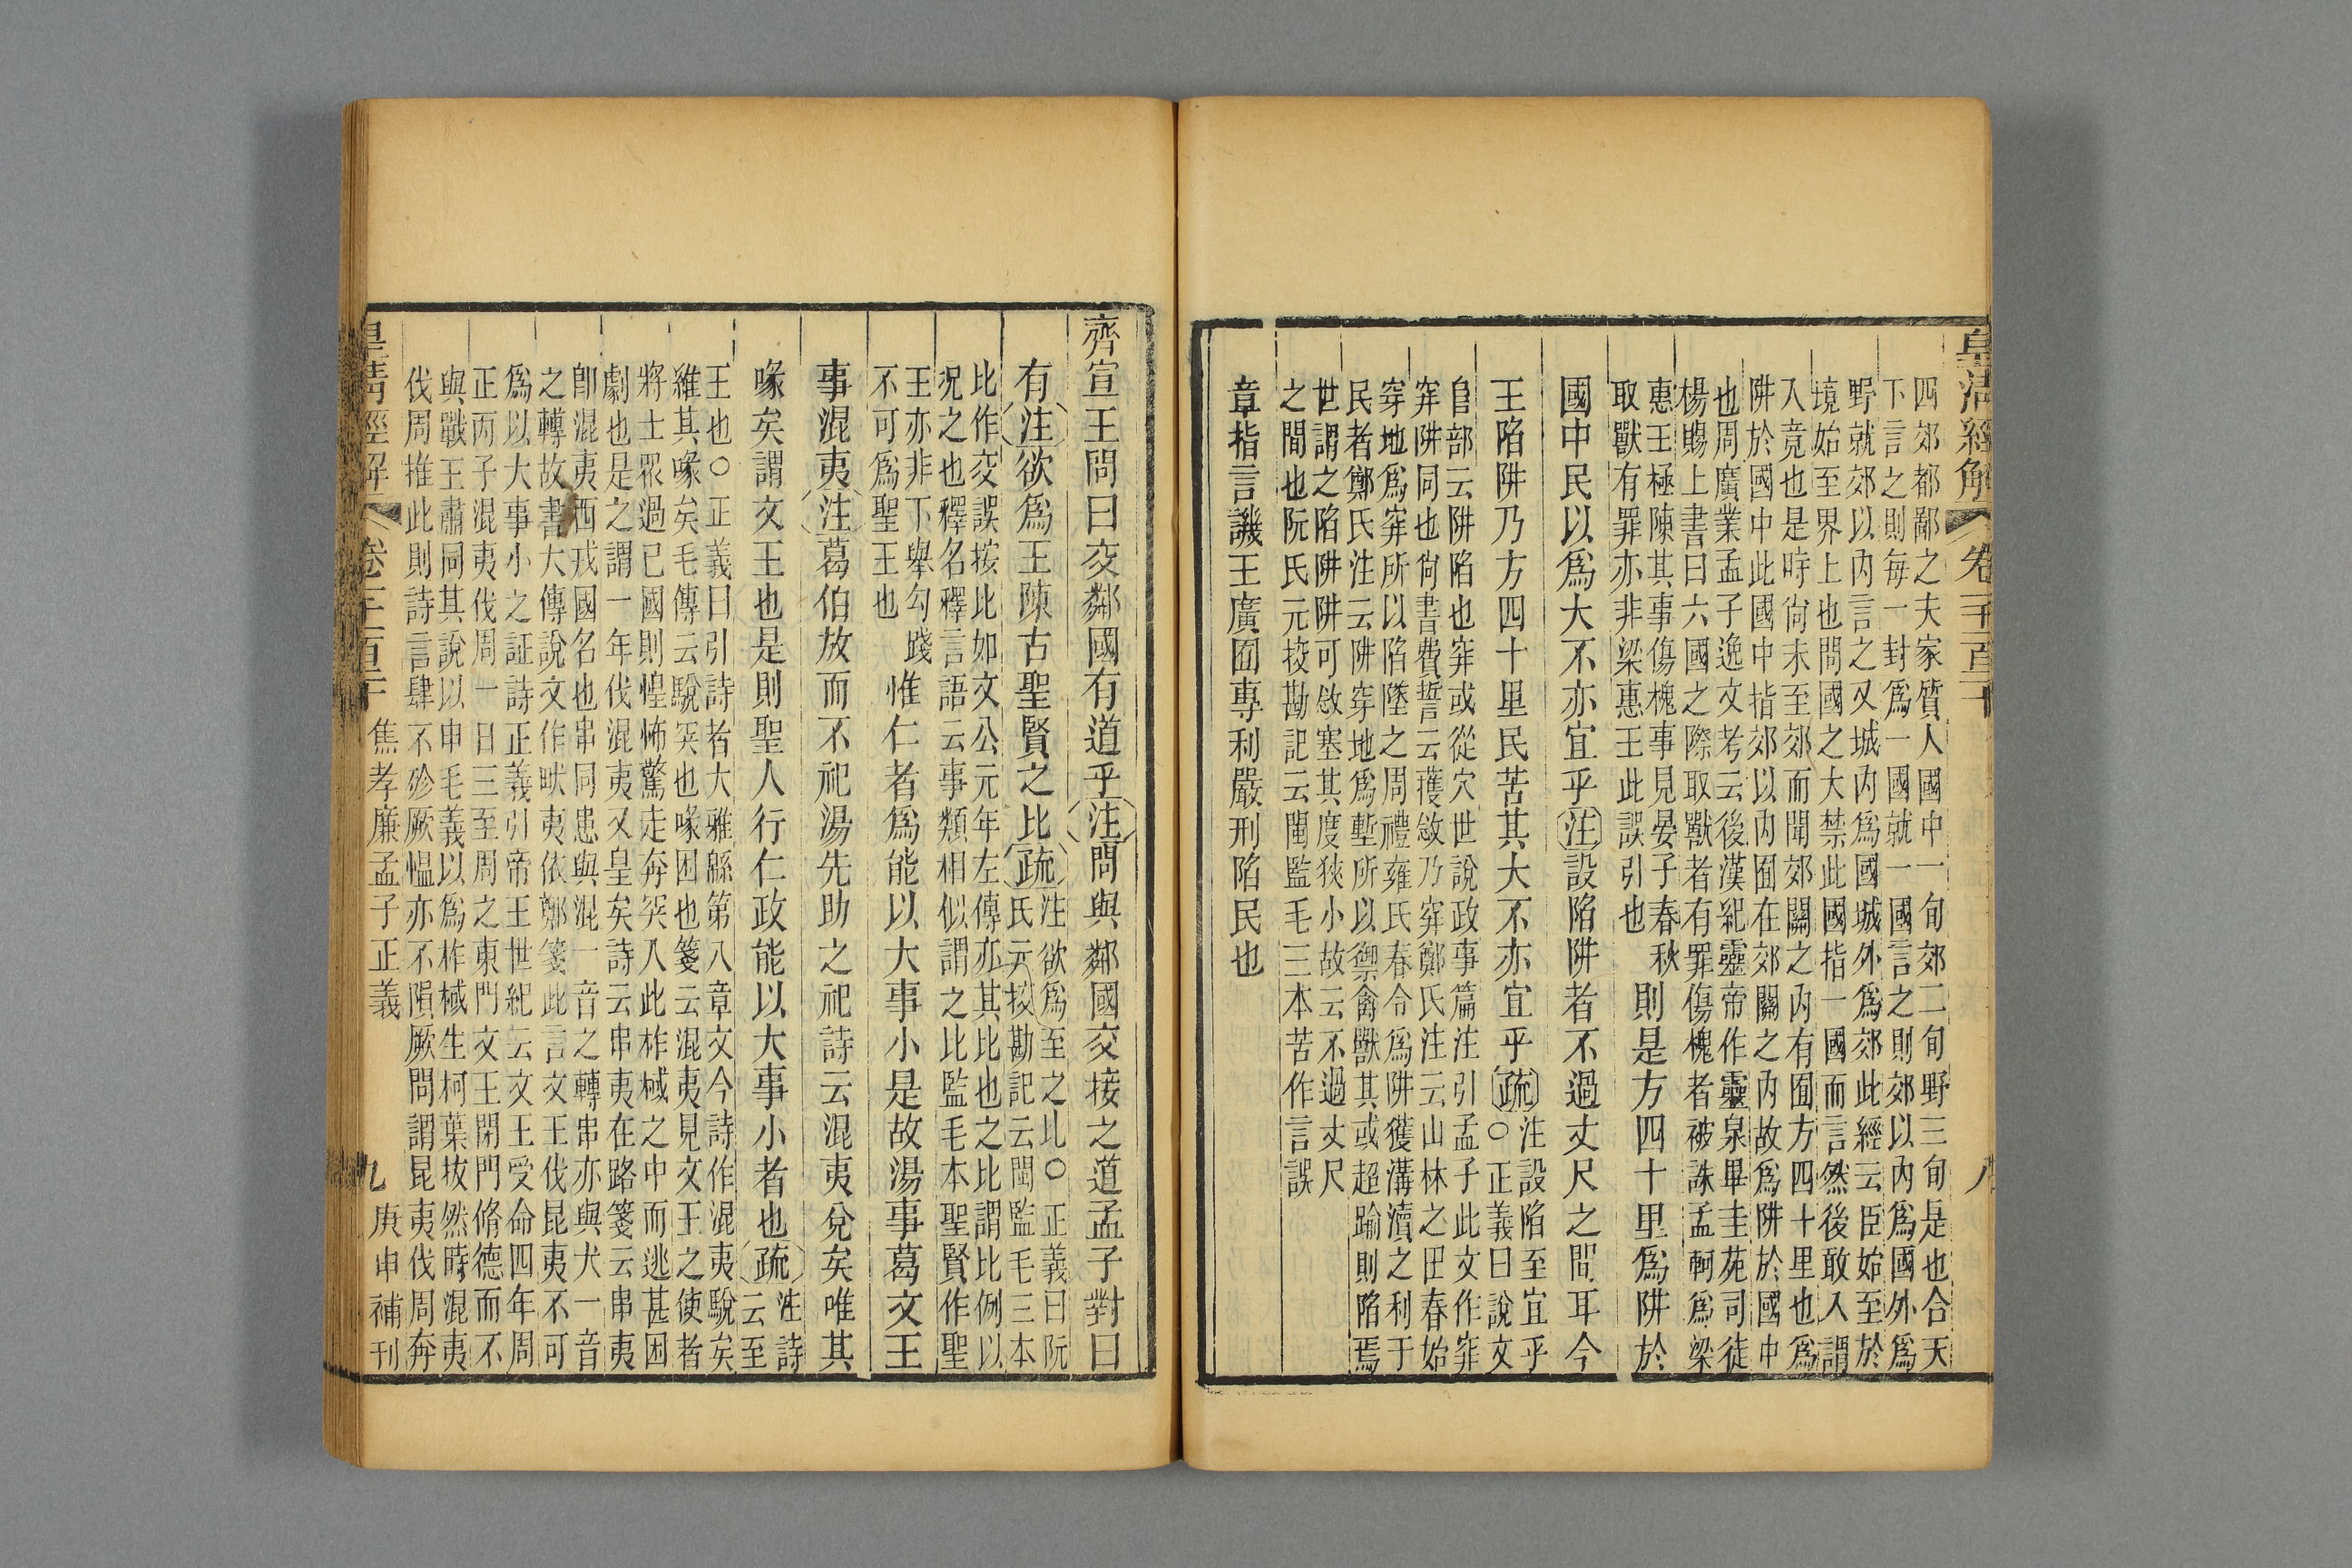 皇淸經解
卷一千一百二十
八
四郊都鄙之夫家質人國中一旬郊二旬野三旬是也合天
下言之則每一封爲一國就一國言之則郊以內爲國外爲
野就郊以內言之又城內爲國城外爲郊此經云臣始至於
境始至界上也問國之大禁此國指一國而言然後敢入謂
入竟也是時尙未至郊而聞郊關之內有囿方四十里也爲
阱於國中此國中指郊以內囿在郊關之內故爲阱於國中
也周廣業孟子逸文考云後漢紀靈帝作靈泉畢圭苑司徒
楊賜上書曰六國之際取獸者有罪傷槐者被誅孟軻爲梁
惠王極陳其事傷槐事見晏子春秋
取獸有罪亦非梁惠王此誤引也
則是方四十里爲阱於
國中民以爲大不亦宜乎注設陷阱者不過丈尺之間耳今
王陷阱乃方四十里民苦其大不亦宜乎疏
注設陷至宜乎
○正義曰說文
𨸏部云阱陷也穽或從穴世說政事篇注引孟子此文作穽
穽阱同也尙書費誓云䕶敜乃穽鄭氏注云山林之田春始
穿地爲穽所以陷墜之周禮雍氏春令爲阱獲溝瀆之利于
民者鄭氏注云阱穿地爲塹所以禦禽獸其或超踰則陷焉
世謂之陷阱阱可敜塞其度狹小故云不過丈尺
之間也阮氏元挍勘記云閩監毛三本苦作言誤
章指言譏王廣囿專利嚴刑陷民也
齊宣王問曰交鄰國有道乎注問與鄰國交接之道孟子對曰
有注欲爲王陳古聖賢之比疏
注欲爲至之比○正義曰阮
氏元挍勘記云閩監毛三本
比作交誤按比如文公元年左傳亦其比也之比謂比例以
況之也釋名釋言語云事類相似謂之比監毛本聖賢作聖
王亦非下舉勾踐
不可爲聖王也
惟仁者爲能以大事小是故湯事葛文王
事混夷注葛伯放而不祀湯先助之祀詩云混夷兌矣唯其
喙矣謂文王也是則聖人行仁政能以大事小者也疏
注詩
云至
王也○正義曰引詩者大雅緜第八章文今詩作混夷駾矣
維其喙矣毛傳云駾突也喙困也箋云混夷見文王之使者
將士眾過已國則惶怖驚走奔突入此柞棫之中而逃甚困
劇也是之謂一年伐混夷又皇矣詩云串夷在路箋云串夷
卽混夷西戎國名也串同患與混一音之轉串亦與犬一音
之轉故書大傳說文作畎夷依鄭箋此言文王伐昆夷不可
爲以大事小之証詩正義引帝王世紀云文王受命四年周
正丙子混夷伐周一日三至周之東門文王閉門脩德而不
與戰王肅同其說以申毛義以爲柞棫生柯葉拔然時混夷
伐周推此則詩言肆不殄厥慍亦不隕厥問謂昆夷伐周奔
皇淸經解
卷一千一百二十
焦孝廉孟子正義
九
庚申補刊